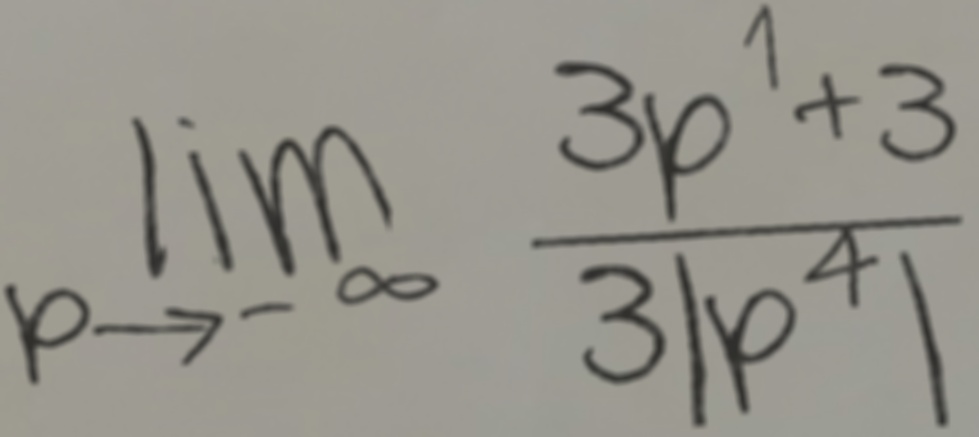 \lim_{p \to -\infty} \frac{3p^1+3}{3|p^4|}